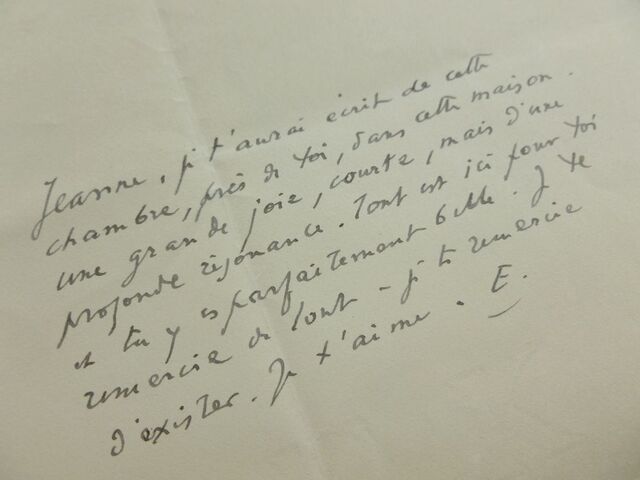 Jeanne, je t'aurai écrit de cette
chambre, près de toi, dans cette maison.
une grande joie, courte, mais d'une
profonde résonance. Tout est ici pour toi
et tu y es parfaitement belle. Je te
remercie de tout - je te remercie
d'exister. Je t'aime. E.